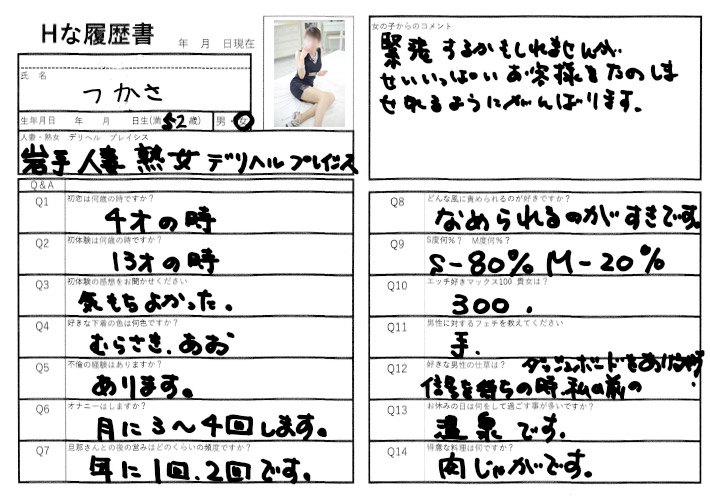 Hな履歴書
年 月 日現在
氏 名
つかさ
生年月日 年 月 日生(満52歳) 男・女
人妻・熟女 デリヘル プレイシス
岩手人妻熟女デリヘルプレイシス
女の子からのコメント
緊張するかもしれませんが
せいいっぱいお客様をたのしま
せれるようにがんばります。
Q&A
Q1 初恋は何歳の時ですか?
4才の時
Q4 好きな下着の色は何色ですか?
むらさき、あお
Q5 不倫の経験はありますか?
あります。
Q6 オナニーはしますか?
月に3〜4回します。
Q7 旦那さんとの夜の営みはどのくらいの頻度ですか?
年に1回、2回です。
Q8 どんな風に責められるのが好きですか?
なめられるのがすきです。
Q9 S度何%? M度何%?
S-80% M-20%
Q10 エッチ好きマックス100 貴女は?
300.
Q11 男性に対するフェチを教えてください
手.
Q12 好きな男性の仕草は?
信号を待ちの時、私の前の
ダッシュボードを
Q13 お休みの日は何をして過ごす事が多いですか?
温泉です.
Q14 得意な料理は何ですか?
肉じゃがです.